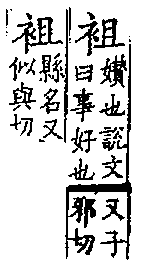 袓
㜺也說文
曰事好也
又子
邪切
袓
縣名又
似與切